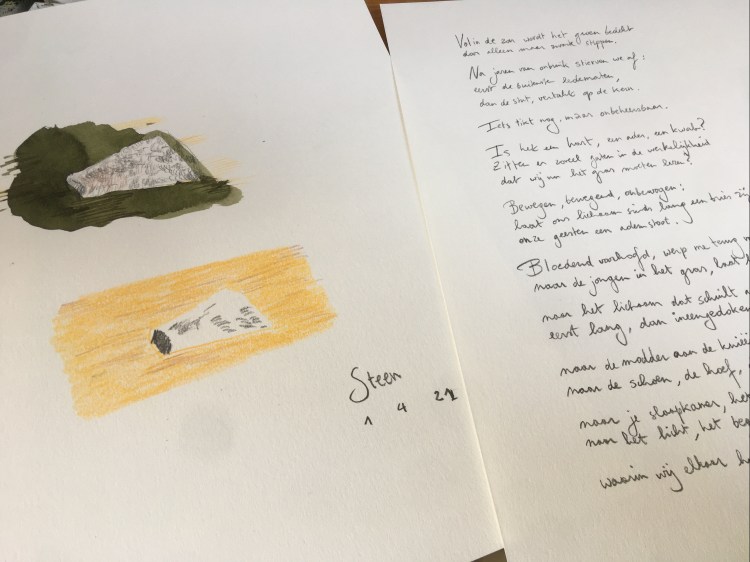 Steen
1 4 21
Vol in de zon wordt het geven bedicht
door alleen maar zwarte stippen.
Na jaren van ontruk stierven we af:
eerst de buitenste ledematen,
dan de stut, vertakt op de keon.
Iets tint nog, maar onbeheersbaar.
Is het een hart, een ader, een kwab?
Zitten er zoveel gaten in de werkelijkheid
dat wij van het gras moeten leren?
Bewegen, bewegend, onbewogen:
haat ons lichaam sinds lang een huis
onze geesten een ademstoot.
Bloedend voorhoofd, werp me terug
naar de jongen in het gras, laat
naar het lichaam dat schuilt
eerst lang, dan ineengedoken
naar de modder aan de knieë
naar de schoen, de hoef,
naar je slaapkamer, het
naar het licht, het be
waarin wij elkaar